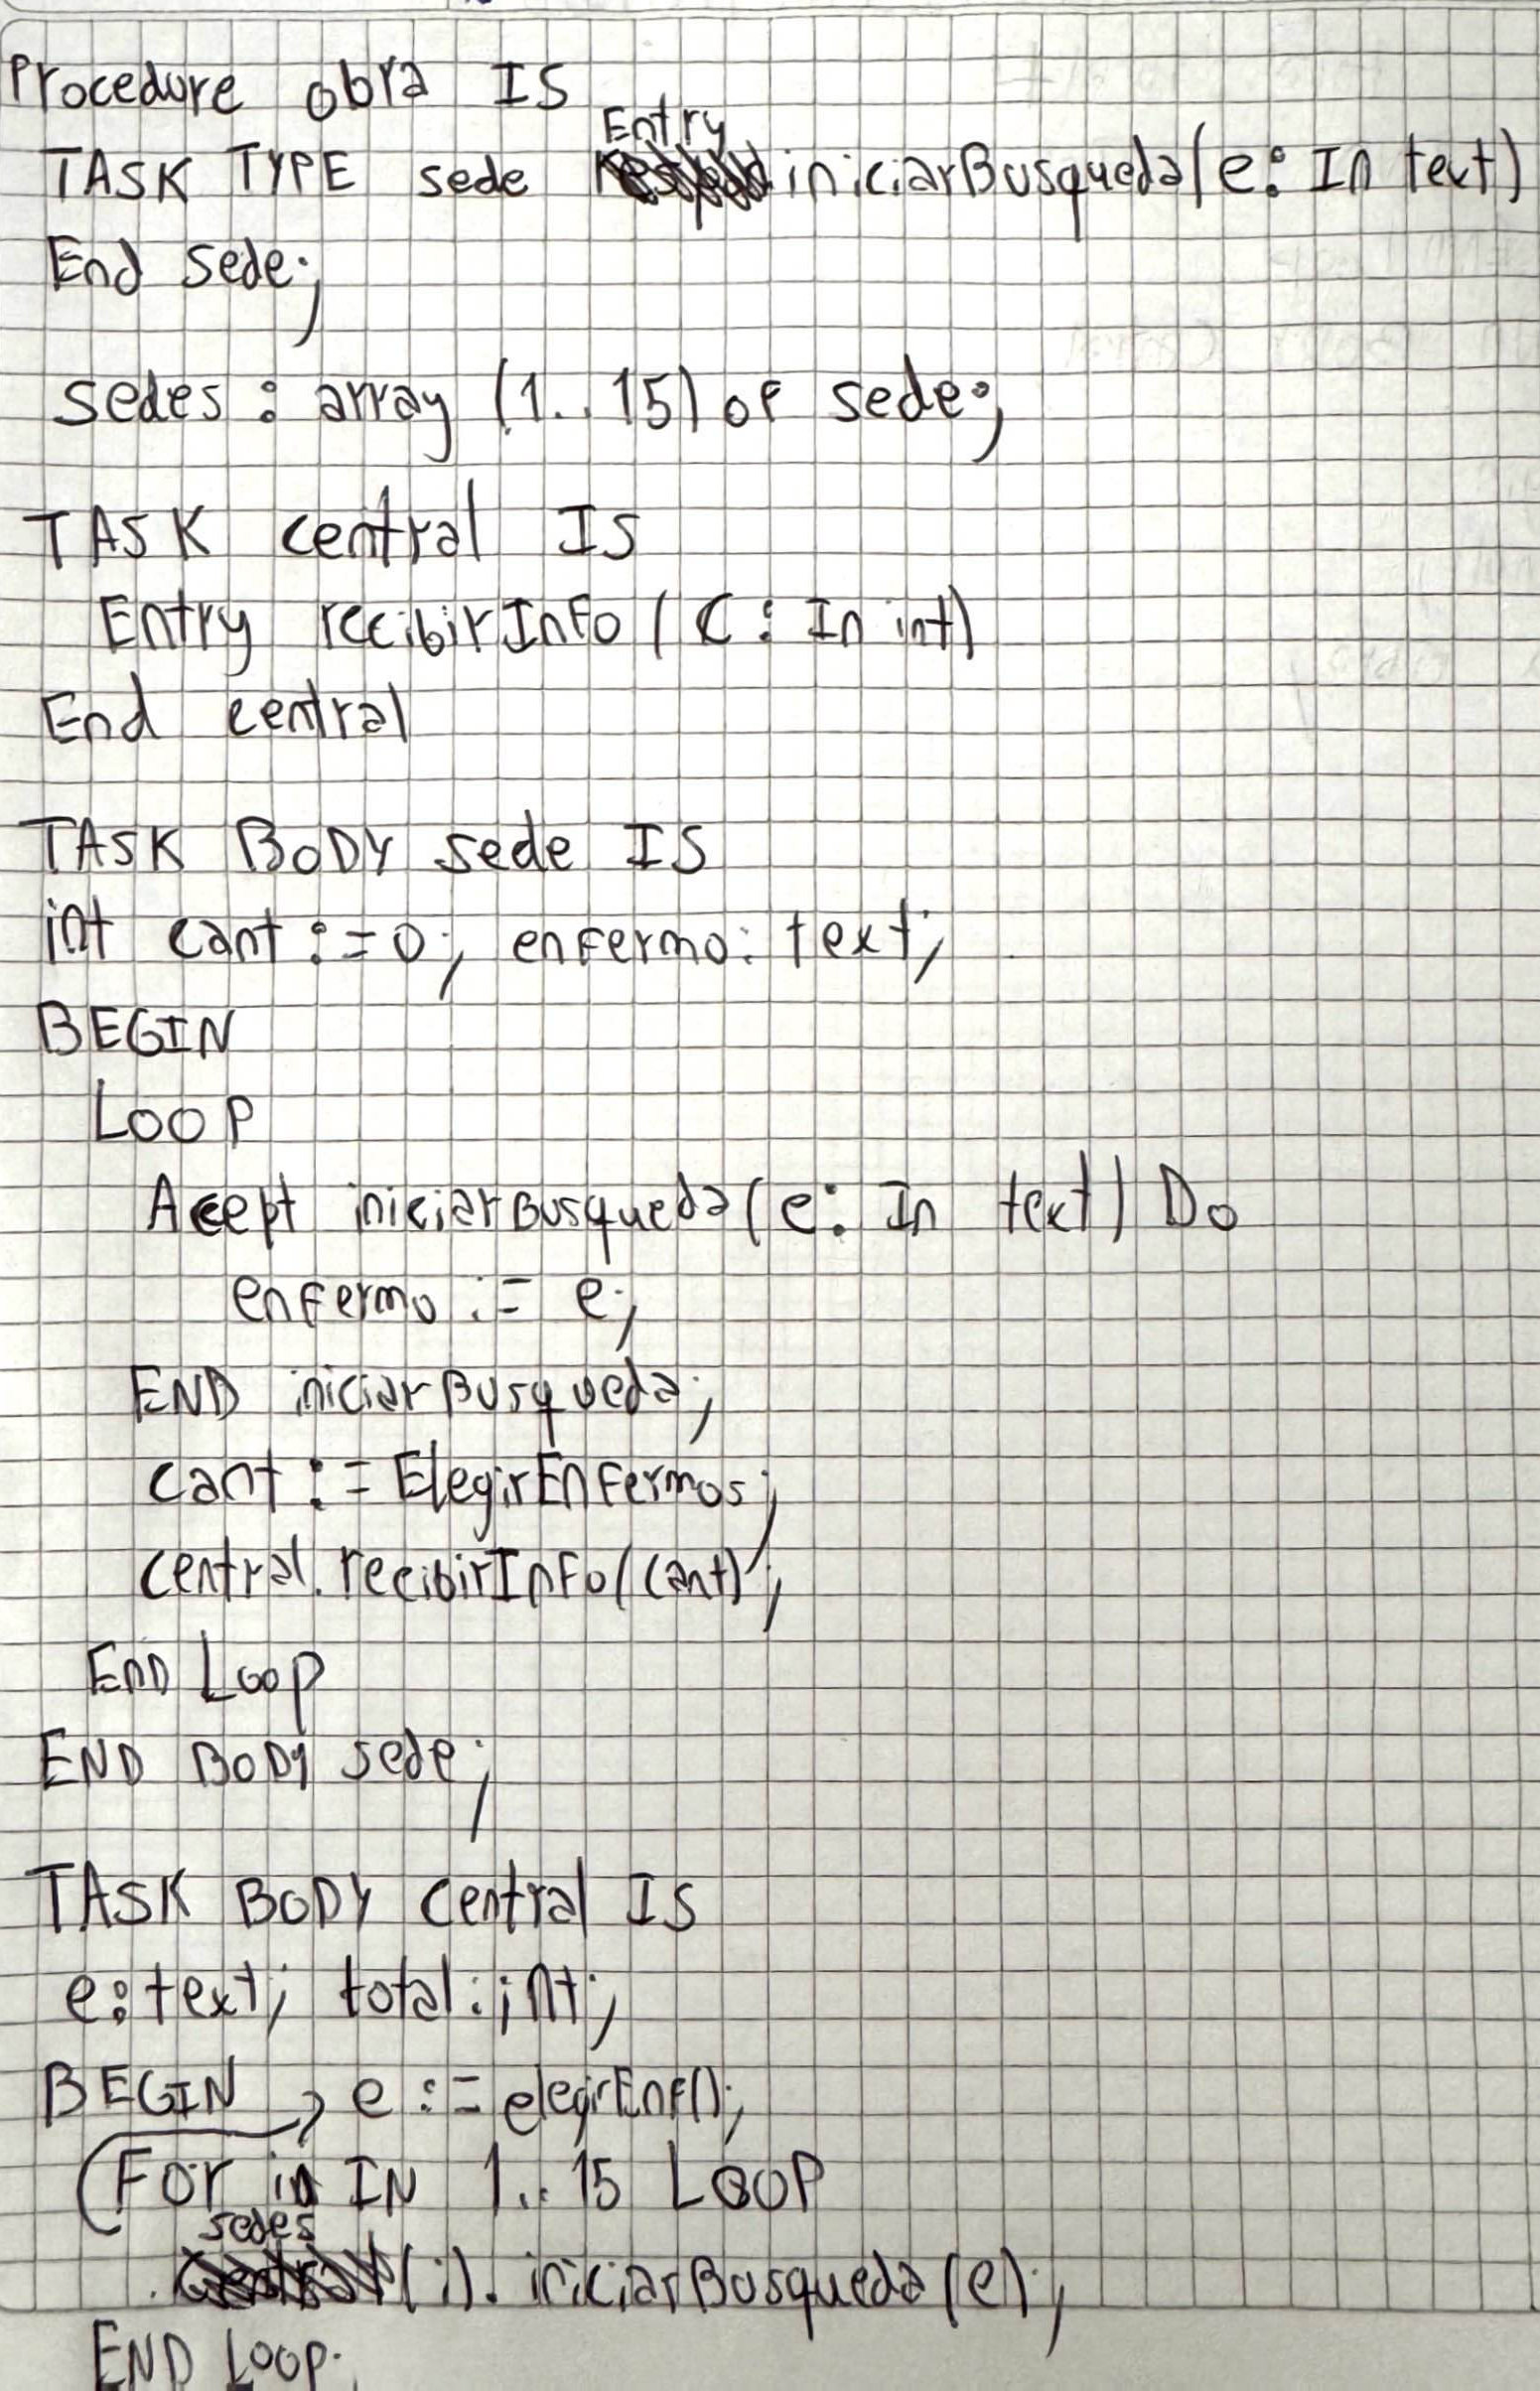 Procedure obra IS
TASK TYPE sede Entry iniciarBusqueda(e: In text)
End sede;
sedes : array (1..15) of sede;
TASK central IS
Entry recibirInfo (C : In int)
End central
TASK BODY sede IS
int cant := 0; enfermo: text;
BEGIN
LOOP
Acept iniciarBusqueda(e: In text) Do
enfermo := e;
END iniciarBusqueda;
cant := ElegirEnfermos;
central.recibirInfo(cant);
END Loop
END BODY sede;
TASK BODY central IS
e: text; total: int;
BEGIN → e := elegirEnf();
For i IN 1..15 LOOP
sedes(i).iniciarBusqueda(e);
END LOOP;